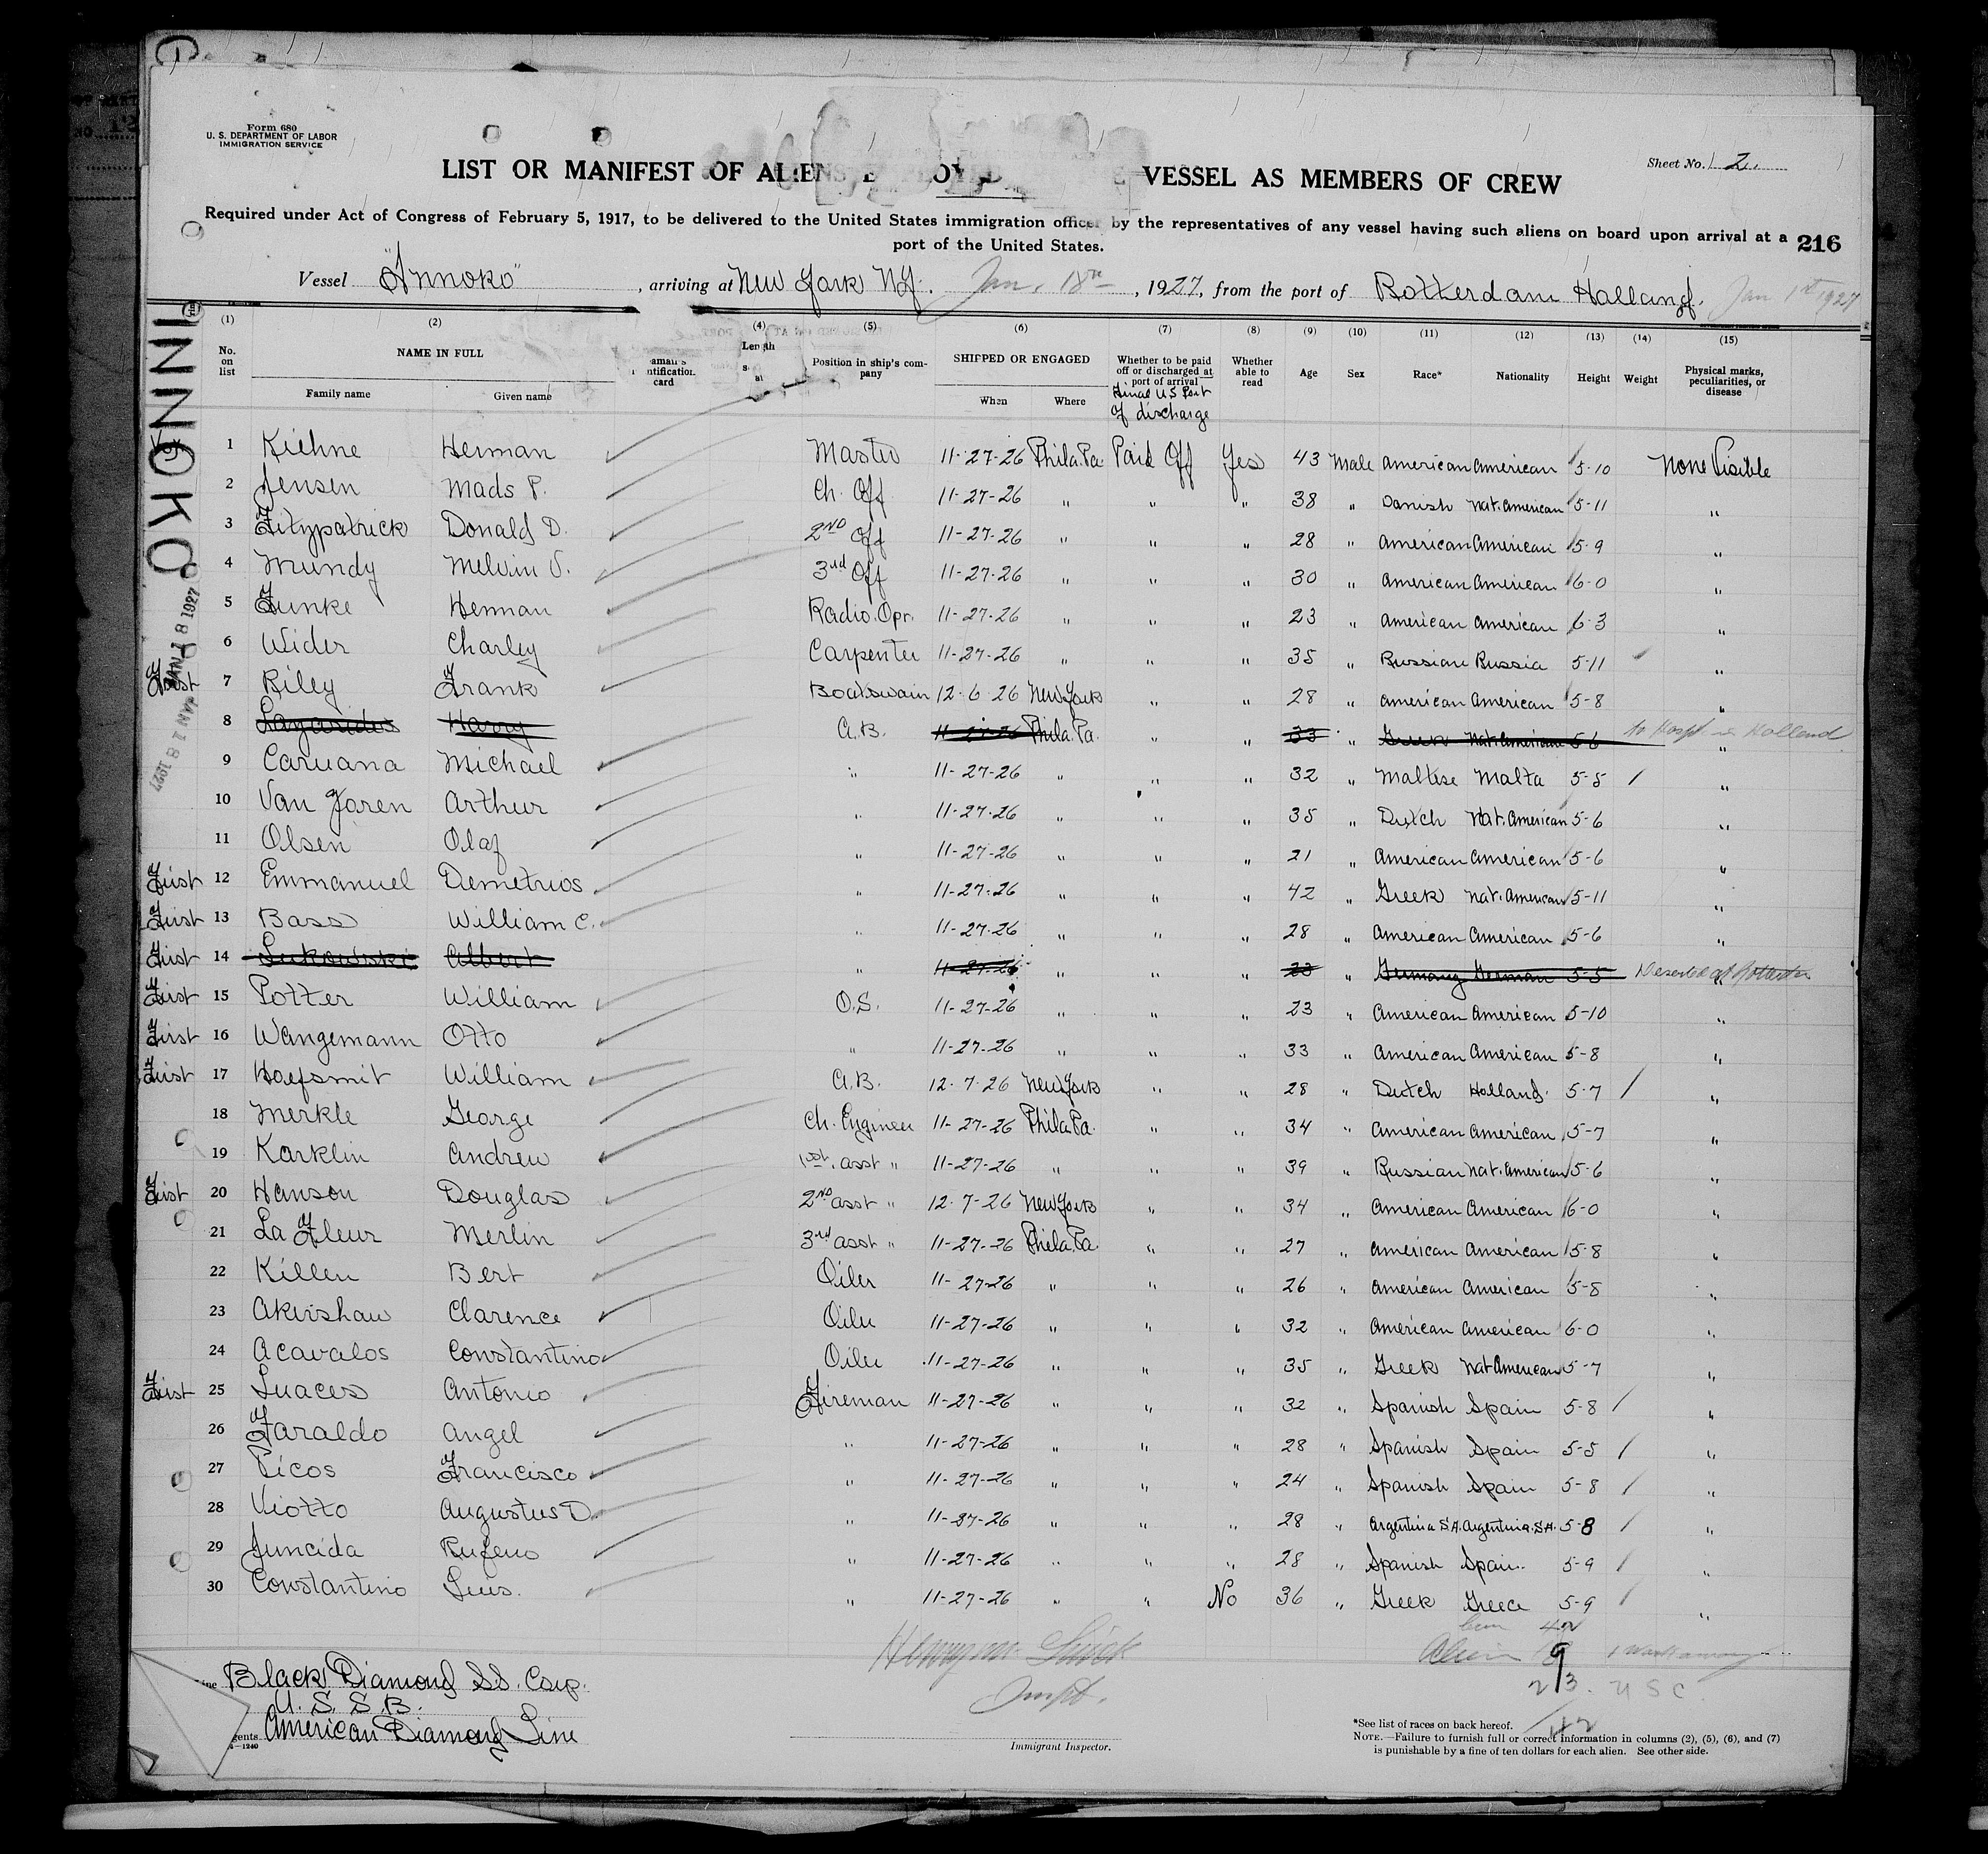 Form 680
U. S. DEPARTMENT OF LABOR
IMMIGRATION SERVICE
Sheet No. 2.
LIST OR MANIFEST OF ALIENS VESSEL AS MEMBERS OF CREW
Required under Act of Congress of February 5, 1917, to be delivered to the United States immigration officer by the representatives of any vessel having such aliens on board upon arrival at a
port of the United States.
216
Vessel "Innoko", arriving at New York N.Y. Jan. 18th, 1927, from the port of Rotterdam Holland. Jan 1st 1927
INNOKO
JAN 18 1927
JAN 18 1927
(1) (2) (4) (5) (6) (7) (8) (9) (10) (11) (12) (13) (14) (15)
No. on list NAME IN FULL Family name Given name Length Position in ship's company SHIPPED OR ENGAGED When Where Whether to be paid off or discharged at port of arrival Final US Port of discharge Whether able to read Age Sex Race* Nationality Height Weight Physical marks, peculiarities, or disease
1 Kiehne Herman Master 11-27-26 Phila. Pa. Paid Off Yes 43 Male American American 5-10 None Visible
2 Jensen Mads P. Ch. Off 11-27-26 " " " 38 " Danish Nat. American 5-11 "
3 Fitzpatrick Donald D. 2ND Off 11-27-26 " " " 28 " American American 5-9 "
4 Mundy Melvin V. 3rd Off 11-27-26 " " " 30 " American American 6-0 "
5 Funke Herman Radio. Opr. 11-27-26 " " " 23 " American American 6-3 "
6 Wider Charley Carpenter 11-27-26 " " " 35 " Russian Russia 5-11 "
First 7 Riley Frank Boatswain 12-6-26 New York " " 28 " American American 5-8 "
8 Harry A.B. 11-27-26 Phila. Pa. " " 33 " Greek Nat. American 5-6 to Hospt in Holland "
9 Caruana Michael " 11-27-26 " " " 32 " Maltese Malta 5-5 "
10 Van Joren Arthur " 11-27-26 " " " 35 " Dutch Nat. American 5-6 "
11 Olsen Olaf " 11-27-26 " " " 21 " American American 5-6 "
First 12 Emmanuel Demetrios " 11-27-26 " " " 42 " Greek Nat. American 5-11 "
First 13 Bass William C. " 11-27-26 " " " 28 " American American 5-6 "
First 14 Lukowski Albert " 11-27-26 " " " 23 " Germany German 5-5 Deserted at "
First 15 Potter William O.S. 11-27-26 " " " 23 " American American 5-10 "
First 16 Wangemann Otto " 11-27-26 " " " 33 " American American 5-8 "
First 17 Hoefsmit William A.B. 12-7-26 New York " " 28 " Dutch Holland 5-7 "
18 Merkle George Ch. Engineer 11-27-26 Phila Pa. " " 34 " American American 5-7 "
19 Karklin Andrew 1st. asst " 11-27-26 " " " 39 " Russian Nat. American 5-6 "
First 20 Hanson Douglas 2ND asst " 12-7-26 New York " " 34 " American American 6-0 "
21 La Fleur Merlin 3rd asst " 11-27-26 Phila. Pa. " " 27 " American American 5-8 "
22 Killen Bert Oiler 11-27-26 " " " 26 " American American 5-8 "
23 Akershaw Clarence Oiler 11-27-26 " " " 32 " American American 6-0 "
24 Acavalos Constantino Oiler 11-27-26 " " " 35 " Greek Nat American 5-7 "
First 25 Luaces Antonio Fireman 11-27-26 " " " 32 " Spanish Spain 5-8 "
26 Faraldo Angel " 11-27-26 " " " 28 " Spanish Spain 5-5 "
27 Picos Francisco " 11-27-26 " " " 24 " Spanish Spain 5-8 "
28 Viotto Augustus D. " 11-27-26 " " " 28 " Argentina S.A. Argentina. S.A. 5-8 "
29 Juncida Rufeno " 11-27-26 " " " 28 " Spanish Spain. 5-9 "
30 Constantino Luis. " 11-27-26 " " No 36 " Greek Greece 5-9 "
Alien 9 1 Workaway
213. USC.
Line Black Diamond SS. Corp.
U.S.S.B.
American Diamond Line
Immigrant Inspector.
*See list of races on back hereof.
NOTE.—Failure to furnish full or correct information in columns (2), (5), (6), and (7)
is punishable by a fine of ten dollars for each alien. See other side.